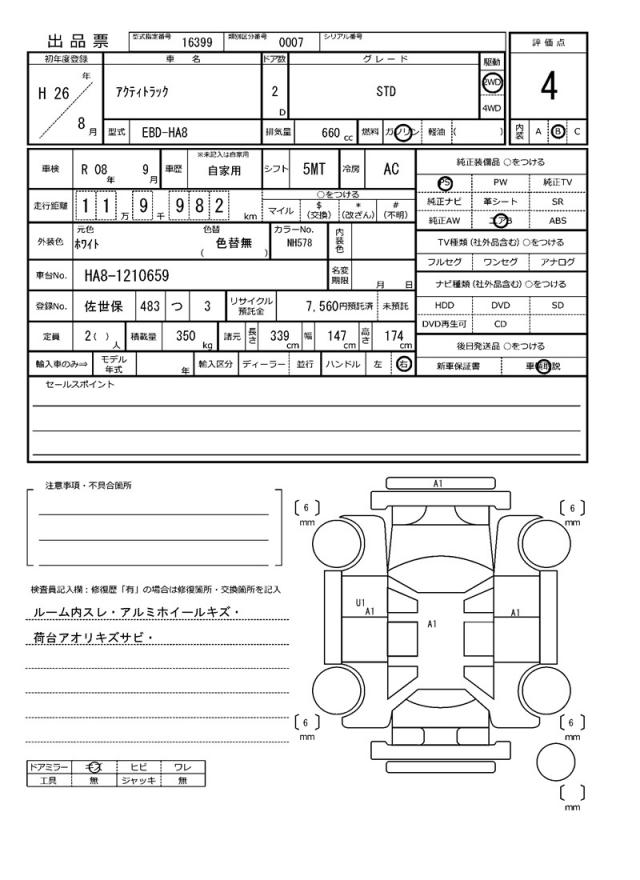 出品票 型式指定番号 16399 類別区分番号 0007 シリアル番号
評価点
4
内装 A B C
初年度登録 車名 ドア数 グレード 駆動
H 26 年 8 月 アクティトラック 2 D STD 2WD 4WD
型式 EBD-HA8 排気量 660 cc 燃料 ガソリン 軽油 ( )
車検 R 08 年 9 月 車歴 ※未記入は自家用 自家用 シフト 5MT 冷房 AC
走行距離 1 1 万 9 千 9 8 2 km ○をつける マイル $(交換) *(改ざん) #(不明)
外装色 元色 ホワイト 色替 ( 色替無 ) カラーNo. NH578 内装色
車台No. HA8-1210659 名変期限 月 日
登録No. 佐世保 483 つ 3 リサイクル預託金 7,560円預託済 未預託
定員 2( ) 人 積載量 350 kg 諸元 長さ 339 cm 幅 147 cm 高さ 174 cm
輸入車のみ⇒ モデル年式 年 輸入区分 ディーラー 並行 ハンドル 左 右
純正装備品 ○をつける
PS PW 純正TV
純正ナビ 革シート SR
純正AW エアB ABS
TV種類(社外品含む) ○をつける
フルセグ ワンセグ アナログ
ナビ種類(社外品含む) ○をつける
HDD DVD SD
DVD再生可 CD
後日発送品 ○をつける
新車保証書 車輌取説
セールスポイント
注意事項・不具合箇所
検査員記入欄:修復歴「有」の場合は修復箇所・交換箇所を記入
ルーム内スレ・アルミホイールキズ・
荷台アオリキズサビ・
ドアミラー キズ ヒビ ワレ
工具 無 ジャッキ 無
A1
[ 6 ] mm
[ 6 ] mm
U1
A1
A1
A1
[ 6 ] mm
[ 6 ] mm
[ ] mm